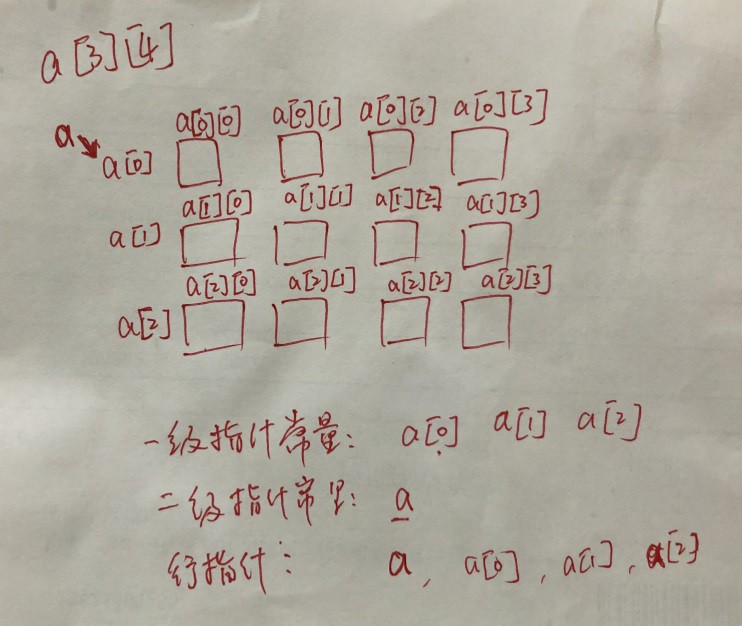 a[3][4]
a[0][0] a[0][1] a[0][2] a[0][3]
a a[0]
a[1][0] a[1][1] a[1][2] a[1][3]
a[1]
a[2][0] a[2][1] a[2][2] a[2][3]
a[2]
一级指针常量: a[0] a[1] a[2]
二级指针常量: a
行指针: a, a[0], a[1], a[2]